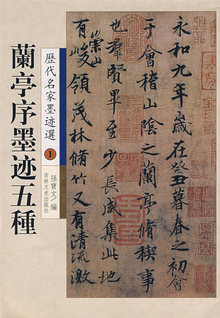 永和九年歲在癸丑暮春之初會
于會稽山陰之蘭亭脩稧事
也群賢畢至少長咸集此地
有崇山峻領茂林脩竹又有清流激
歷代名家墨迹選
1
孫寶文/編
吉林文史出版社
蘭亭序墨迹五種